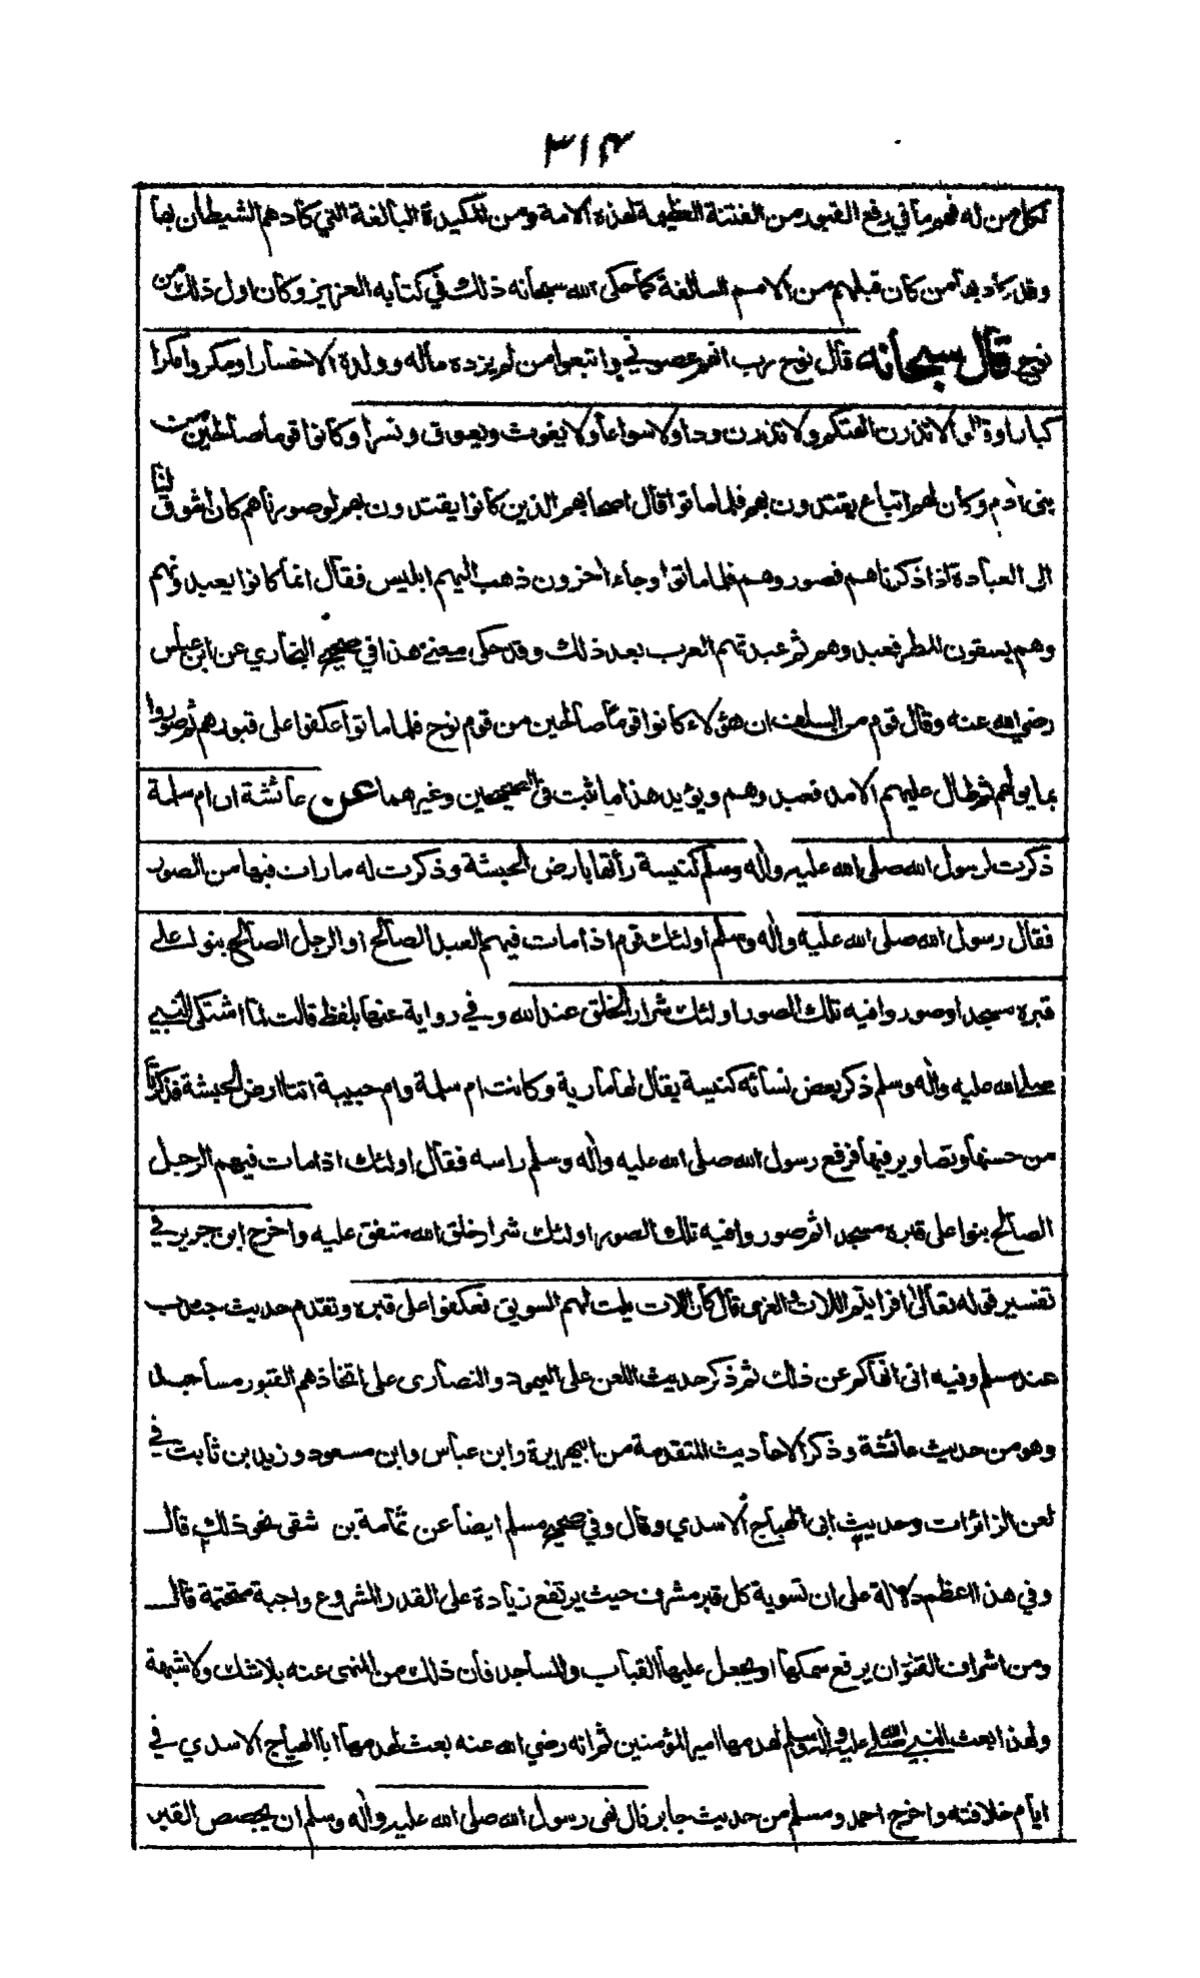 ٣١٤
لكل من له فهم ما في رفع القبور من الفتنة العظيمة لهذه الامة ومن المكيدة البالغة التي كادهم الشيطان بها
وقد كاد بها من كان قبلهم من الامم السالفة كما حكى الله سبحانه ذلك في كتابه العزيز وكان اول ذلك من
نوح قال سبحانه قال نوح رب انهم عصوني واتبعوا من لم يزده ماله وولده الا خسارا ومكروا مكرا
كبارا وقالوا لا تذرن الهتكم ولا تذرن ودا ولا سواعا ولا يغوث ويعوق ونسرا وكانوا قوما صالحين من
بني ادم وكان لهم اتباع يقتدون بهم فلما ماتوا قال اصحابهم الذين كانوا يقتدون بهم لو صورناهم كان اشوق لنا
الى العبادة اذا ذكرناهم فصوروهم فلما ماتوا وجاء اخرون ذهب اليهم ابليس فقال انما كانوا يعبدونهم
وهم يسقون المطر فعبدوهم ثم عبدتهم العرب بعد ذلك وقد حكى معنى هذا في صحيح البخاري عن ابن عباس
رضي الله عنه وقال قوم من السلف ان هؤلاء كانوا قوما صالحين من قوم نوح فلما ماتوا عكفوا على قبورهم ثم صوروا
تماثيلهم ثم طال عليهم الامد فعبدوهم ويؤيد هذا ما ثبت في الصحيحين وغيرهما عن عائشة ان ام سلمة
ذكرت لرسول الله صلى الله عليه واله وسلم كنيسة رأتها بارض الحبشة وذكرت له ما رات فيها من الصور
فقال رسول الله صلى الله عليه واله وسلم اولئك قوم اذا مات فيهم العبد الصالح او الرجل الصالح بنوا على
قبره مسجدا وصوروا فيه تلك الصور اولئك شرار الخلق عند الله وفي رواية عنها بلفظ قالت لما اشتكى النبي
صلى الله عليه واله وسلم ذكر بعض نسائه كنيسة يقال لها مارية وكانت ام سلمة وام حبيبة اتتا ارض الحبشة فذكرتا
من حسنها وتصاوير فيها فرفع رسول الله صلى الله عليه واله وسلم راسه فقال اولئك اذا مات فيهم الرجل
الصالح بنوا على قبره مسجدا ثم صوروا فيه تلك الصور اولئك شرار خلق الله متفق عليه واخرج ابن جرير في
تفسير قوله تعالى افرايتم اللات والعزى قال كان اللات يلت لهم السويق فعكفوا على قبره وتقدم حديث جندب
عند مسلم وفيه اني انهاكم عن ذلك ثم ذكر حديث اللعن على اليهود والنصارى على اتخاذهم القبور مساجد
وهو من حديث عائشة وذكر الاحاديث المتقدمة من ابي هريرة وابن عباس وابن مسعود وزيد بن ثابت في
لعن الزائرات وحديث ابي الهياج الاسدي وقال وفي صحيح مسلم ايضا عن ثمامة بن شفى نحو ذلك قال
وفي هذا اعظم دلالة على ان تسوية كل قبر مشرف حيث يرتفع زيادة على القدر المشروع واجبة متحتمة قال
ومن اشراف القبور ان يرفع سمكها او يجعل عليها القباب والمساجد فان ذلك من المنهى عنه بلا شك ولا شبهة
ولهذا بعث النبي صلى الله عليه واله وسلم لهدمها امير المؤمنين ثم انه رضي الله عنه بعث لهدمها ابا الهياج الاسدي في
ايام خلافته واخرج احمد ومسلم من حديث جابر قال نهى رسول الله صلى الله عليه واله وسلم ان يجصص القبر